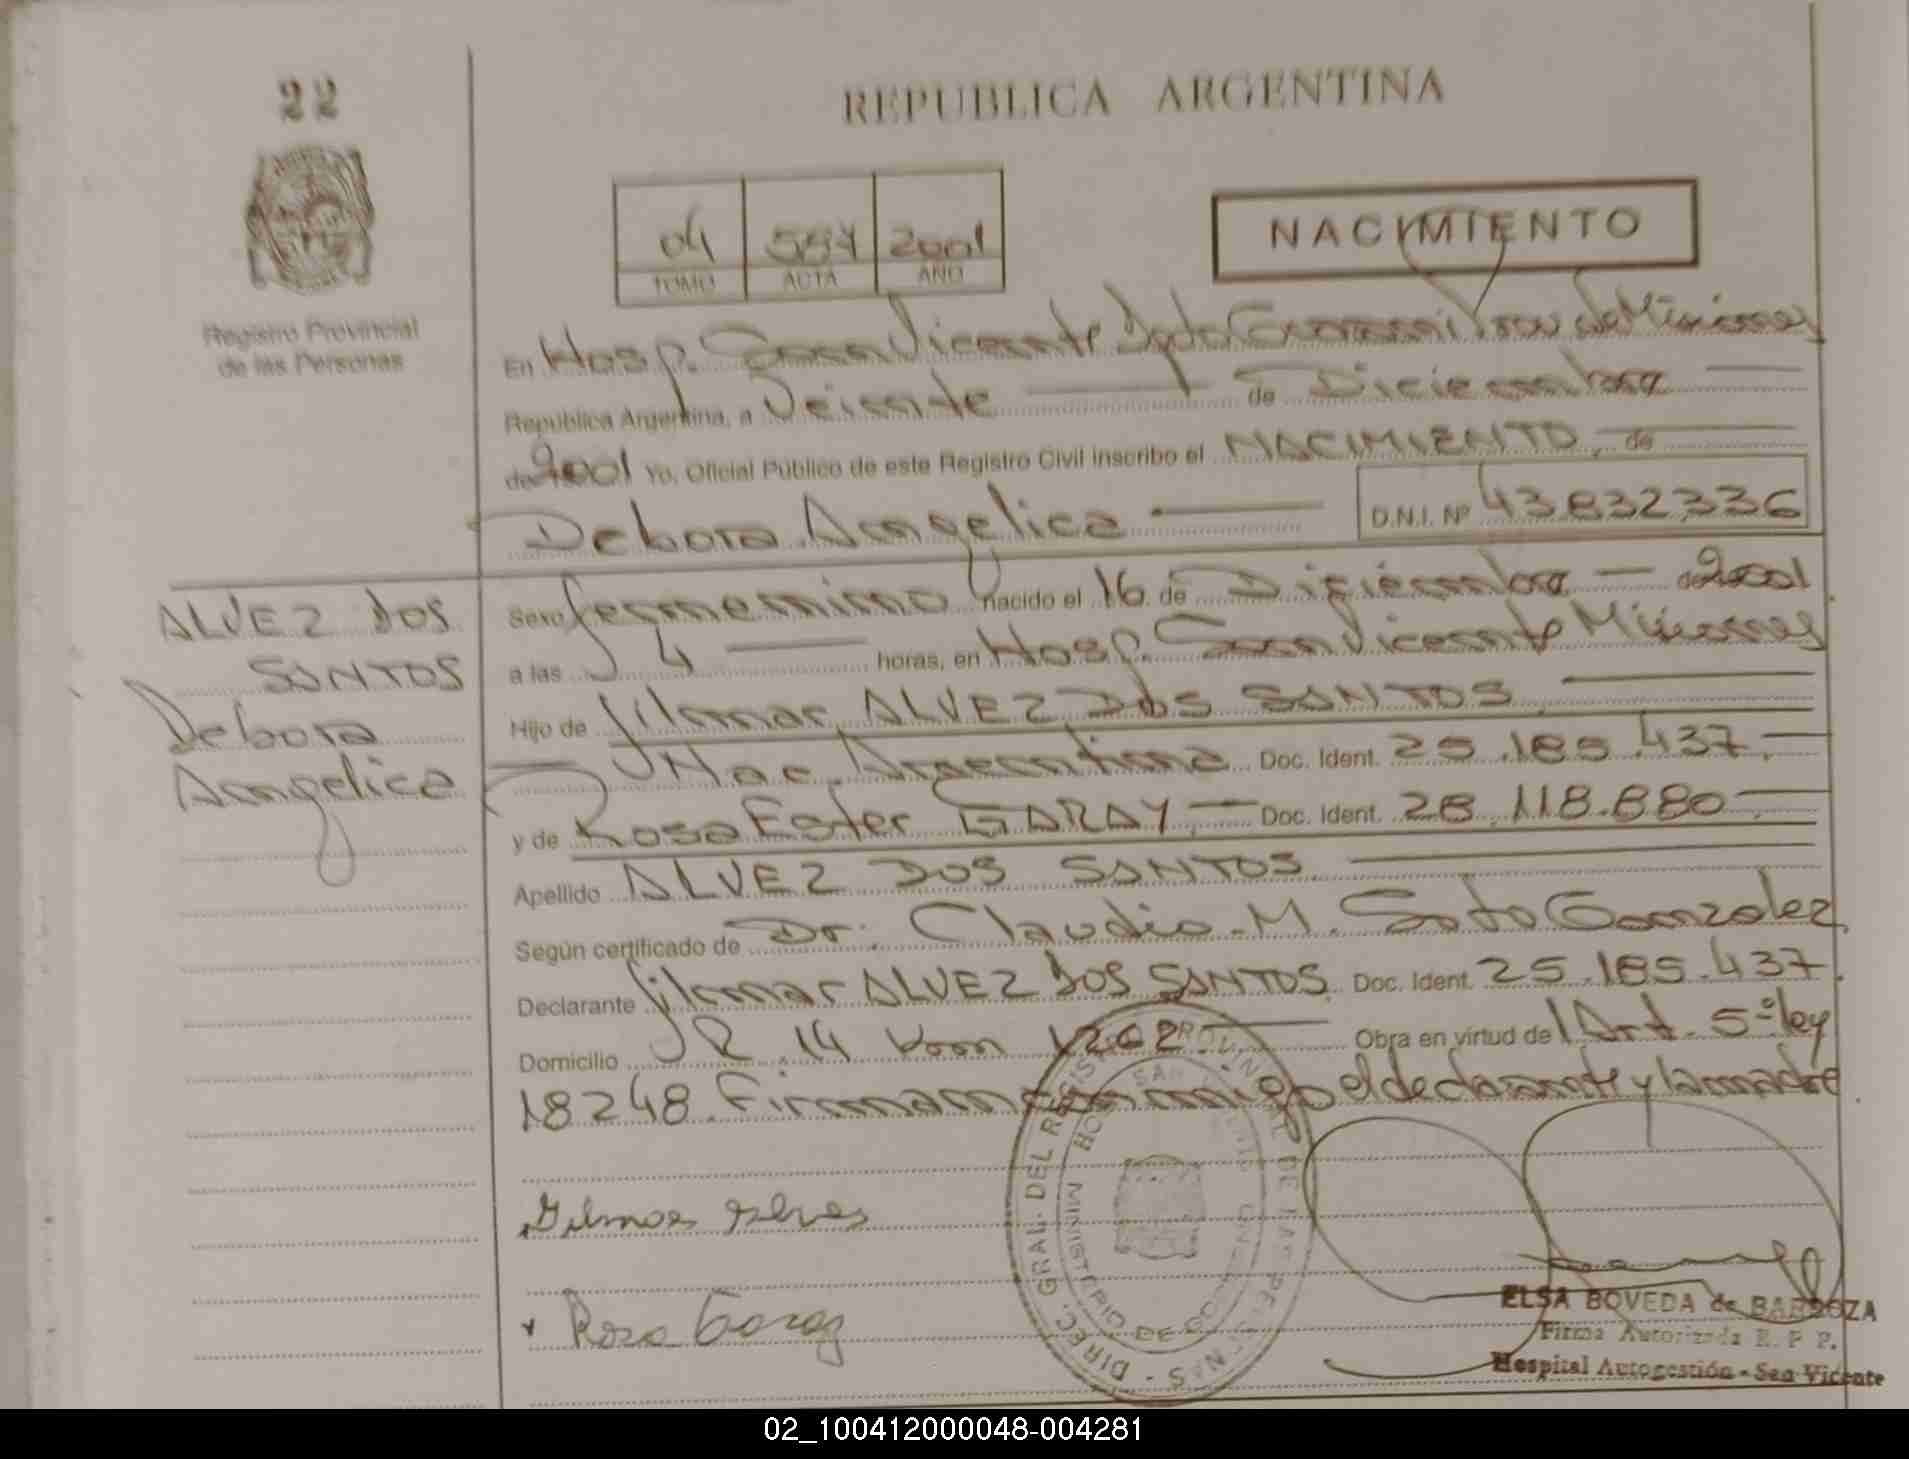 22
REPUBLICA ARGENTINA
04 554 2001
TOMO ACTA AÑO
NACIMIENTO
Registro Provincial
de las Personas
En Hosp. San Vicente Dpto Guarani Prov de Misiones
República Argentina, a Veinte de Diciembre
de 2001 Yo, Oficial Público de este Registro Civil inscribo el NACIMIENTO, de
Debora Angelica D.N.I. Nº 43.832.336
ALVEZ DOS
SANTOS
Debora
Angelica
Sexo femenino nacido el 16 de Diciembre de 2001
a las 4 horas, en Hosp. San Vicente Misiones
Hijo de Gilmar ALVEZ DOS SANTOS
Nac. Argentina Doc. Ident. 25.185.437
y de Rosa Ester GARAY Doc. Ident. 28.118.880
Apellido ALVEZ DOS SANTOS
Según certificado de Dr. Claudio M. Soto Gonzalez
Declarante Gilmar ALVEZ DOS SANTOS Doc. Ident. 25.185.437
Domicilio R. 14 Km 1262 Obra en virtud de Art. 5º ley
18248. Firman conmigo el declarante y la madre
Gilmar Alves
Rosa Garay
DIREC. GRAL. DEL REGISTRO PROVINCIAL DE LAS PERSONAS
MINISTERIO DE GOBIERNO
ELSA BOVEDA de BARBOZA
Firma Autorizada R. P. P.
Hospital Autogestión - San Vicente
02_100412000048-004281